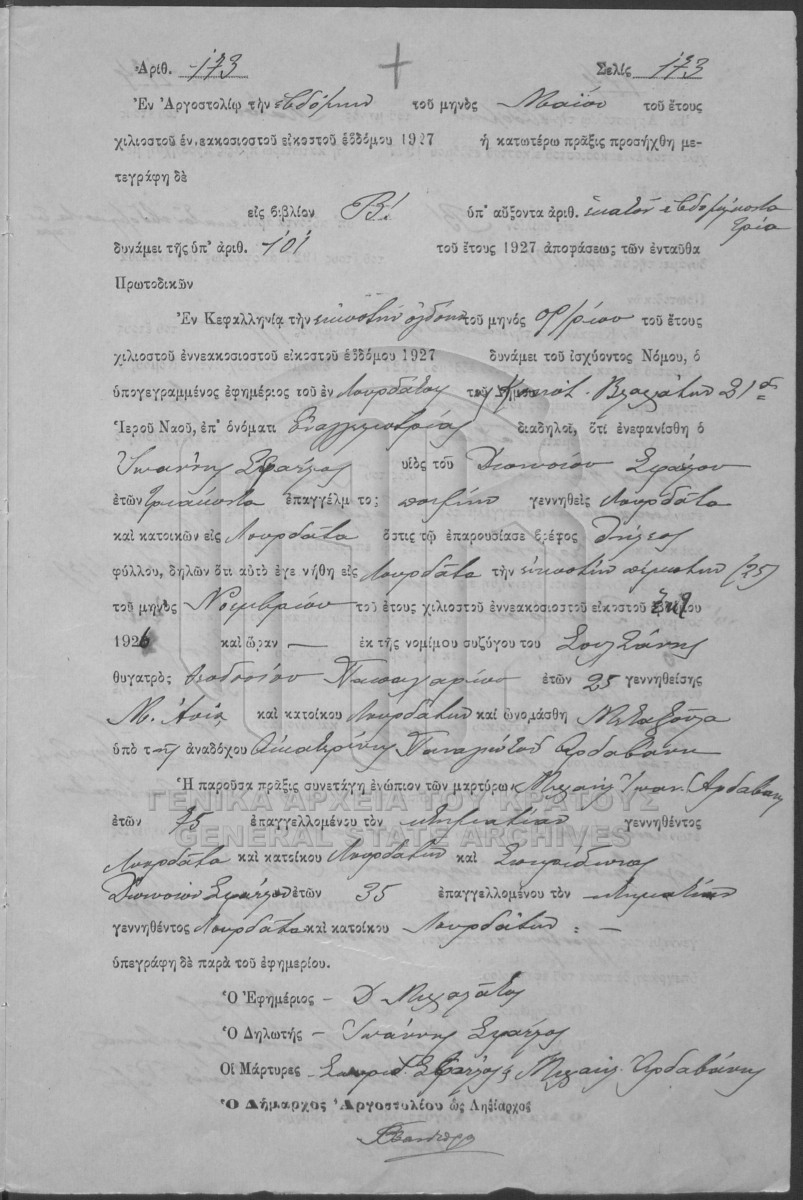 Ἀριθ. 173 Σελὶς 173
Ἐν Ἀργοστολίῳ τὴν ἑβδόμην τοῦ μηνὸς Μαΐου τοῦ ἔτους
χιλιοστοῦ ἐννεακοσιοστοῦ εἰκοστοῦ ἑβδόμου 1927 ἡ κατωτέρω πρᾶξις προσήχθη με-
τεγράφη δὲ
εἰς βιβλίον Β! ὑπ' αὔξοντα ἀριθ. ἑκατὸν ἑβδομήκοντα
τρία
δυνάμει τῆς ὑπ' ἀριθ. 101 τοῦ ἔτους 1927 ἀποφάσεως τῶν ἐνταῦθα
Πρωτοδικῶν
Ἐν Κεφαλληνίᾳ τὴν εἰκοστὴν ὀγδόην τοῦ μηνὸς τοῦ ἔτους
χιλιοστοῦ ἐννεακοσιοστοῦ εἰκοστοῦ ἑβδόμου 1927 δυνάμει τοῦ ἰσχύοντος Νόμου, ὁ
ὑπογεγραμμένος ἐφημέριος τοῦ ἐν Λουρδάτοις τῆς Κοινότ. Βλαχάτων
Ἱεροῦ Ναοῦ, ἐπ' ὀνόματι Εὐαγγελιστρίας διαδηλοῖ, ὅτι ἐνεφανίσθη ὁ
Ἰωάννης Σφαέλος υἱὸς τοῦ Διονυσίου Σφαέλου
ἐτῶν τριάκοντα ἐπαγγέλματος ποιμὴν γεννηθεὶς Λουρδάτα
καὶ κατοικῶν εἰς Λουρδάτα ὅστις τῷ ἐπαρουσίασε βρέφος θήλεος
φύλλου, δηλῶν ὅτι αὐτὸ ἐγεννήθη εἰς Λουρδάτα τὴν εἰκοστὴν πέμπτην (25)
τοῦ μηνὸς Νοεμβρίου τοῦ ἔτους χιλιοστοῦ ἐννεακοσιοστοῦ εἰκοστοῦ ἕκτου
1926 καὶ ὥραν — ἐκ τῆς νομίμου συζύγου του Σουλτάνης
θυγατρὸς Θεοδοσίου ἐτῶν 25 γεννηθείσης
Μ. Ἀσία καὶ κατοίκου Λουρδάτων καὶ ὠνομάσθη Μεταξούλα
ὑπὸ τῆς ἀναδόχου Αἰκατερίνης Παναγιώτου Ἀρδαβάνη
Ἡ παροῦσα πρᾶξις συνετάγη ἐνώπιον τῶν μαρτύρων Μιχαὴλ Ἰωαν. Ἀρδαβάνη
ΓΕΝΙΚΑ ΑΡΧΕΙΑ ΤΟΥ ΚΡΑΤΟΥΣ
ἐτῶν 75 ἐπαγγελλομένου τὸν κτηματίαν γεννηθέντος
GENERAL STATE ARCHIVES
Λουρδάτα καὶ κατοίκου Λουρδάτων καὶ Σπυρίδωνος
Διονυσίου Σφαέλου ἐτῶν 35 ἐπαγγελλομένου τὸν κτηματίαν
γεννηθέντος Λουρδάτα καὶ κατοίκου Λουρδάτων : —
ὑπεγράφη δὲ παρὰ τοῦ ἐφημερίου.
Ὁ Ἐφημέριος – Δ Μιχαλάτος
Ὁ Δηλωτὴς – Ἰωάννης Σφαέλος
Οἱ Μάρτυρες Σπυρίδ. Σφαέλος Μιχαὴλ Ἀρδαβάνης
Ὁ Δήμαρχος Ἀργοστολίου ὡς Ληξίαρχος